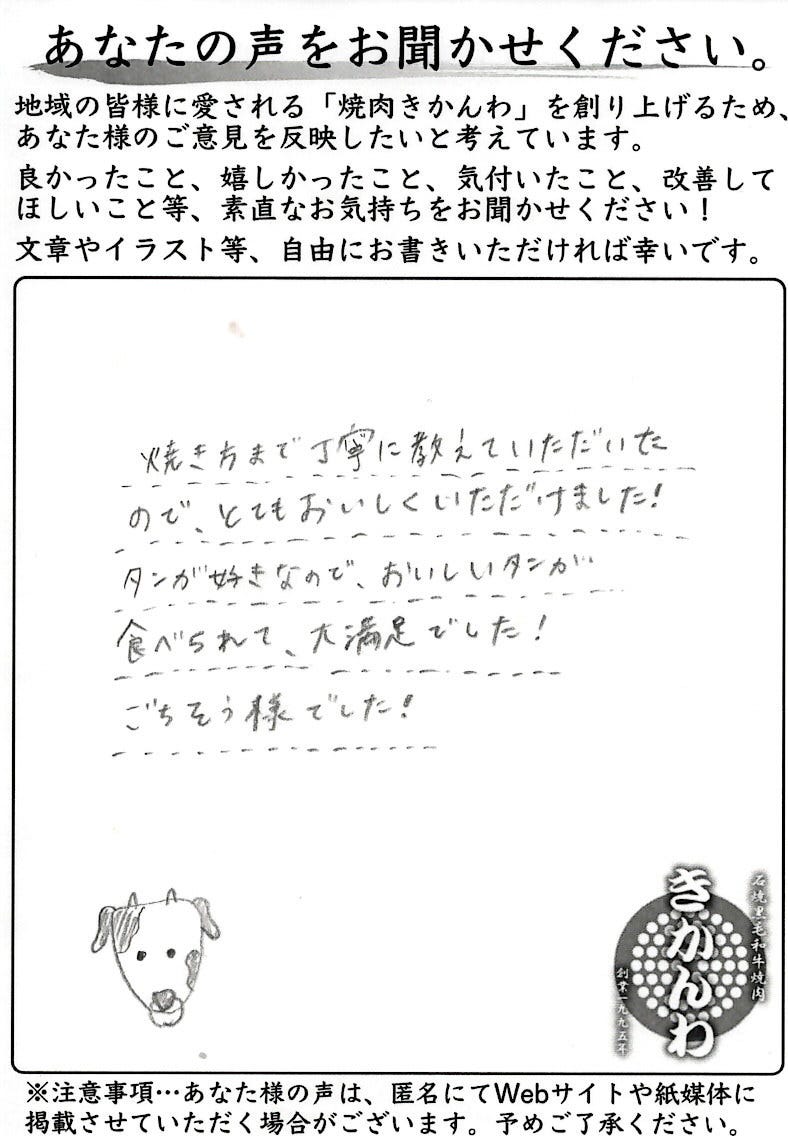 あなたの声をお聞かせください。
地域の皆様に愛される「焼肉きかんわ」を創り上げるため、
あなた様のご意見を反映したいと考えています。
良かったこと、嬉しかったこと、気付いたこと、改善して
ほしいこと等、素直なお気持ちをお聞かせください！
文章やイラスト等、自由にお書きいただければ幸いです。
焼き方まで丁寧に教えていただいた
ので、とてもおいしくいただけました！
タンが好きなので、おいしいタンが
食べられて、大満足でした！
ごちそう様でした！
石焼黒毛和牛焼肉
きかんわ
創業一九九五年
※注意事項…あなた様の声は、匿名にてWebサイトや紙媒体に
掲載させていただく場合がございます。予めご了承ください。